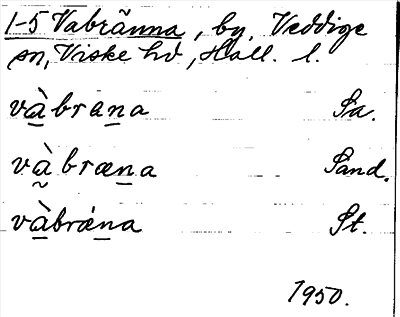 1-5 Vabränna, by, Veddige
sn, Viske hd, Hall. l.
và̱brana̱ Sa.
và̰bræna̱ Sand.
và̱brǽna̱ St.
1950.